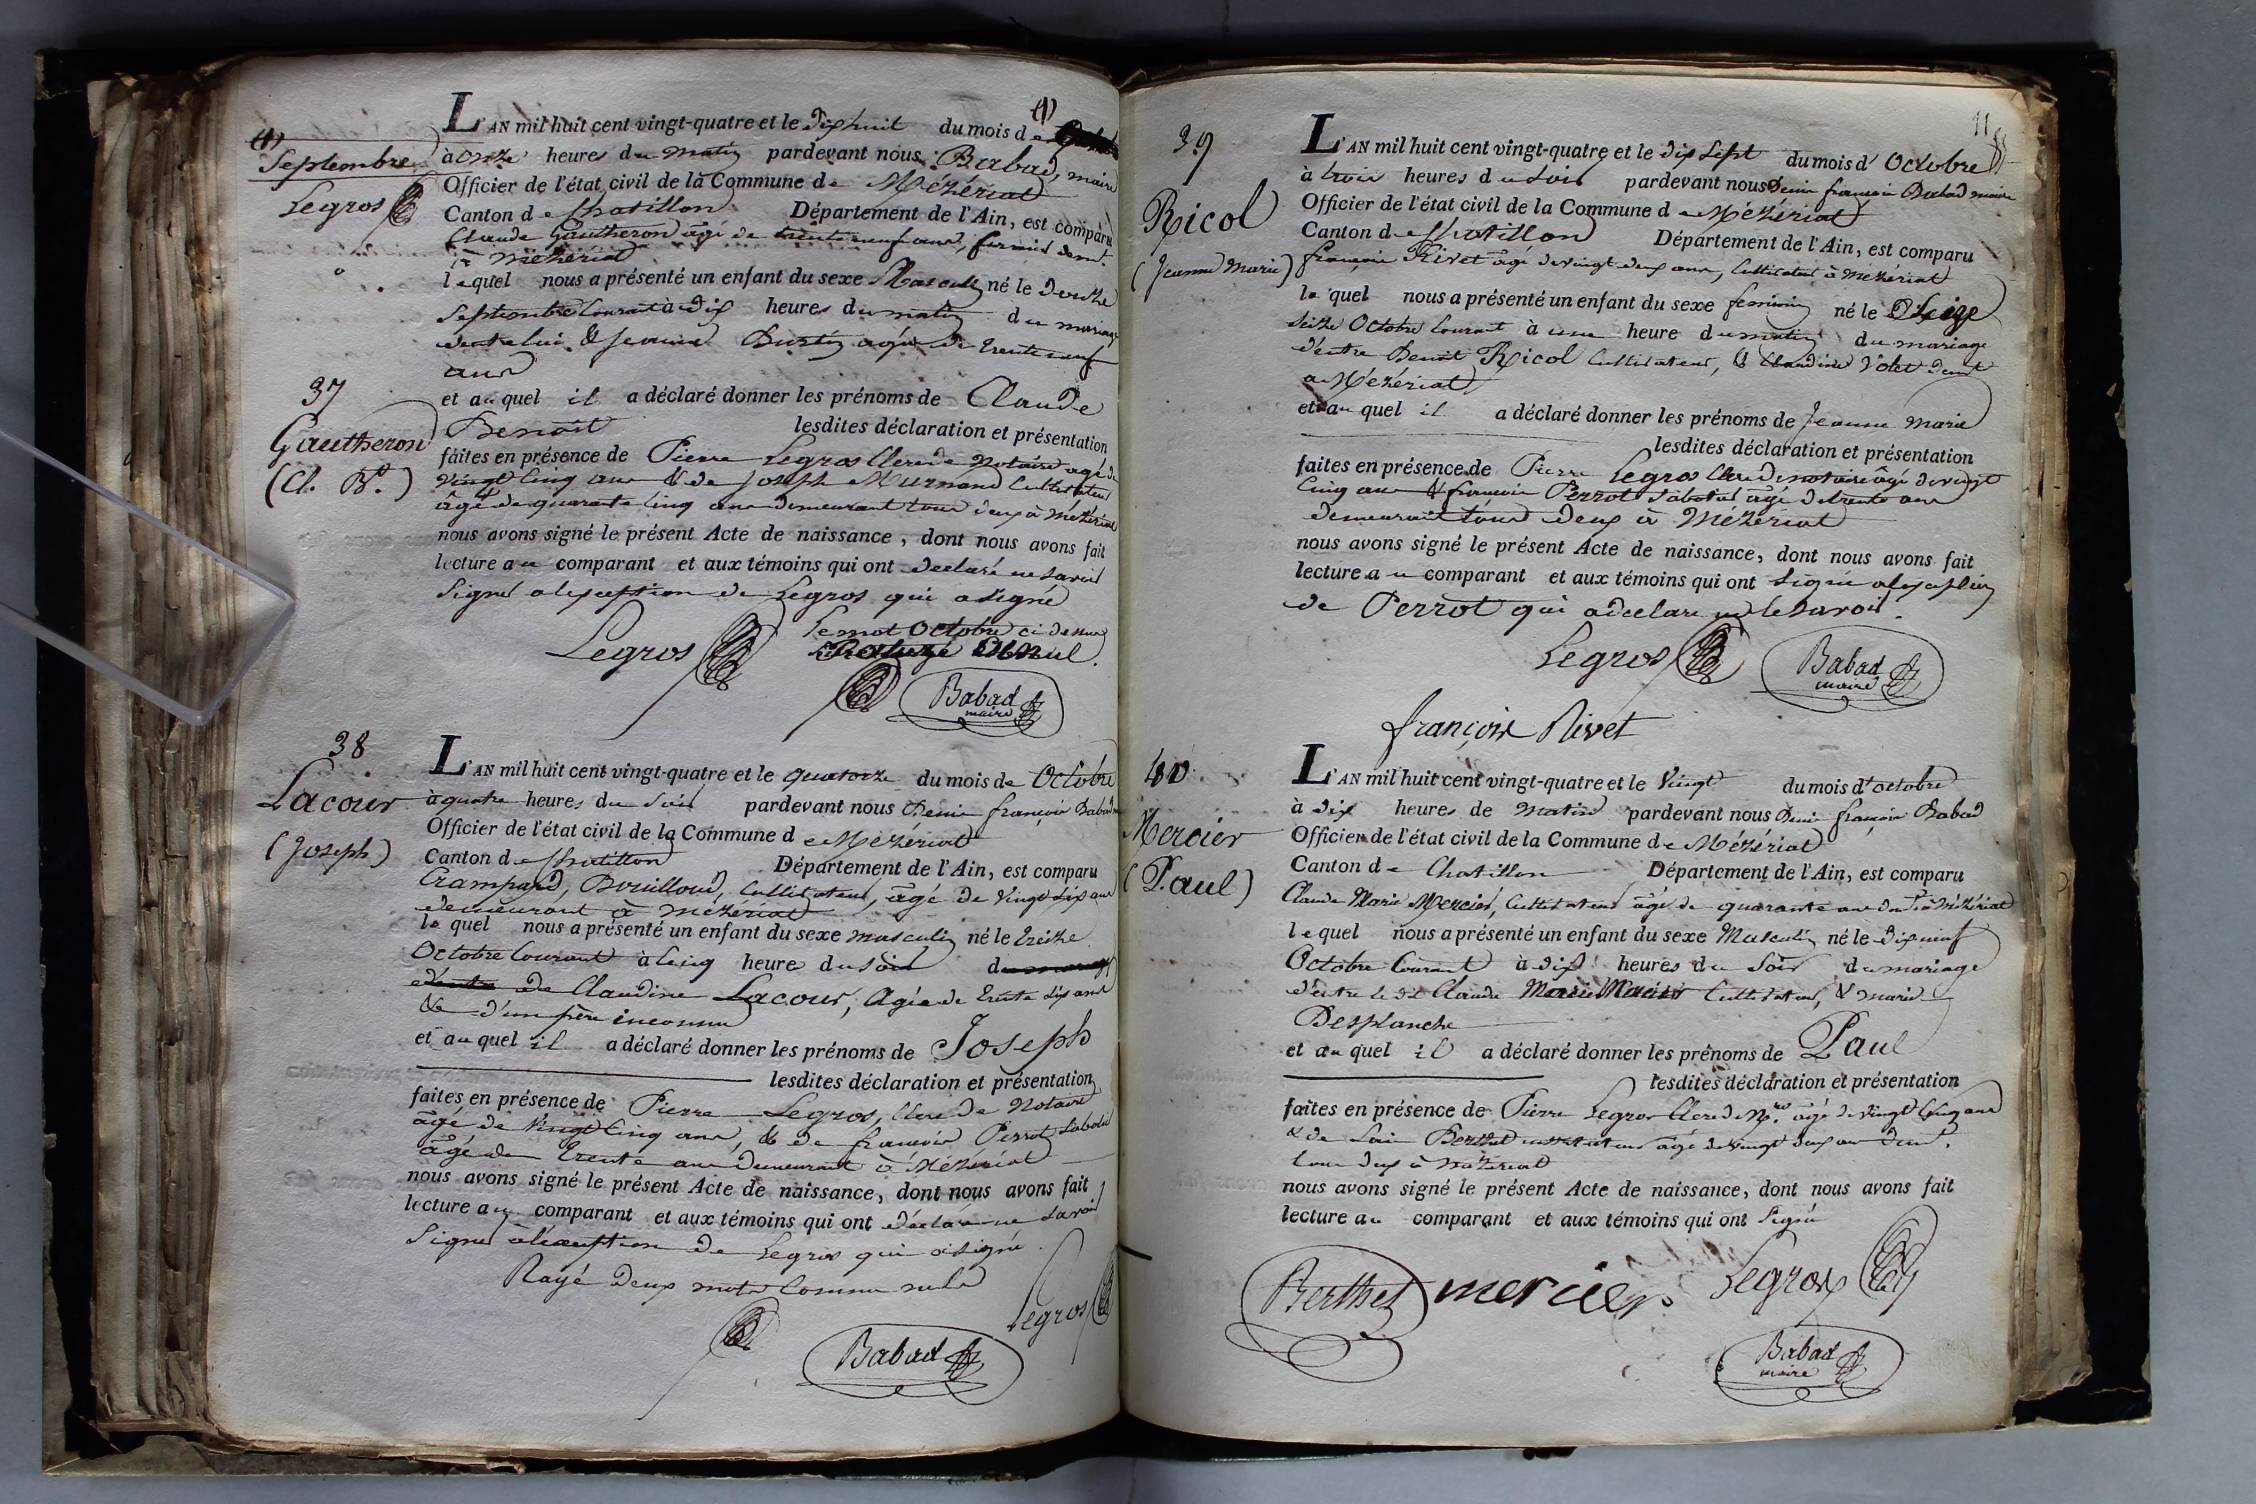 (1)
L'AN mil huit cent vingt-quatre et le dix huit du mois de
(1)
Septembre
Legros
à onze heures du matin pardevant nous Babad, maire
Officier de l'état civil de la Commune de Mézériat
Canton de Chatillon Département de l'Ain, est comparu
Claude Gautheron âgé de trente neuf ans, fermier demt.
à Mézériat
lequel nous a présenté un enfant du sexe Masculin né le douze
Septembre Courant à dix heures du matin du mariage
d'entre lui & Jeanne Burtin agée de trente neuf
ans
37
Gautheron
(Cl. Bt.)
et auquel il a déclaré donner les prénoms de Claude
Benoit lesdites déclaration et présentation
faites en présence de Pierre Legros Clerc de Notaire agé de
vingt Cinq ans & de Joseph Murnand Cultivateur
âgé de quarante Cinq ans demeurant tous deux à Mézériat
nous avons signé le présent Acte de naissance, dont nous avons fait
lecture au comparant et aux témoins qui ont declaré ne savoir
Signer a lexception de Legros qui a signé
Le mot Octobre ci dessus
Legros
Babad
maire
38
Lacour
(Joseph)
L'AN mil huit cent vingt-quatre et le quatorze du mois de Octobre
à quatre heures du Soir pardevant nous Denis françois Babad
Officier de l'état civil de la Commune de Mézériat
Canton de Chatillon Département de l'Ain, est comparu
Crampard, Bouilloud, Cultivateur, âgé de vingt six ans
demeurant à Mézériat
lequel nous a présenté un enfant du sexe masculin né le treize
Octobre Courant à Cinq heure du soir du mariage
d'entre de Claudine Lacour, Agée de trente six ans
& d'un père inconnu
et auquel il a déclaré donner les prénoms de Joseph
lesdites déclaration et présentation
faites en présence de Pierre Legros, Clerc de Notaire
âgé de vingt Cinq ans, & de françois Perrot Sabotier
âgé de trente ans demeurant à Mézériat
nous avons signé le présent Acte de naissance, dont nous avons fait
lecture au comparant et aux témoins qui ont déclaré ne savoir
Signer à l'exception de Legros qui a signé.
Rayé deux mots Comme nuls
Legros
Babad
11
39
Ricol
(Jeanne Marie)
L'AN mil huit cent vingt-quatre et le dix sept du mois d'Octobre
à trois heures du soir pardevant nous Denis françois Babad maire
Officier de l'état civil de la Commune de Mézériat
Canton de Chatillon Département de l'Ain, est comparu
françois Rivet âgé de vingt deux ans, Cultivateur à Mézériat
lequel nous a présenté un enfant du sexe feminin né le Seize
Seize Octobre Courant à une heure du matin du mariage
d'entre Benoit Ricol Cultivateur, & Claudine Volet demt
a Mézériat
et auquel il a déclaré donner les prénoms de Jeanne Marie
lesdites déclaration et présentation
faites en présence de Pierre Legros Clerc de notaire âgé de vingt
Cinq ans & françois Perrot Sabotier âgé de trente ans
demeurant tous deux à Mézériat
nous avons signé le présent Acte de naissance, dont nous avons fait
lecture au comparant et aux témoins qui ont signé a lexception
de Perrot qui a declaré ne le savoir.
Legros
Babad
maire
françois Rivet
40
Mercier
(Paul)
L'AN mil huit cent vingt-quatre et le Vingt du mois d'octobre
à dix heures de matin pardevant nous Denis françois Babad
Officier de l'état civil de la Commune de Mézériat
Canton de Chatillon Département de l'Ain, est comparu
Claude Marie Mercier, Cultivateur âgé de quarante ans demt à Mézériat
lequel nous a présenté un enfant du sexe Masculin né le dix neuf
Octobre Courant à dix heures du Soir du mariage
d'entre le dit Claude Marie Mercier Cultivateur, & marie
Desplanche
et auquel il a déclaré donner les prénoms de Paul
lesdites déclaration et présentation
faites en présence de Pierre Legros Clerc de Nre. âgé de vingt Cinq ans
& de Berthet instituteur âgé de vingt deux ans demt.
tous deux à Mézériat
nous avons signé le présent Acte de naissance, dont nous avons fait
lecture au comparant et aux témoins qui ont Signé
Berthet mercier Legros
Babad
maire